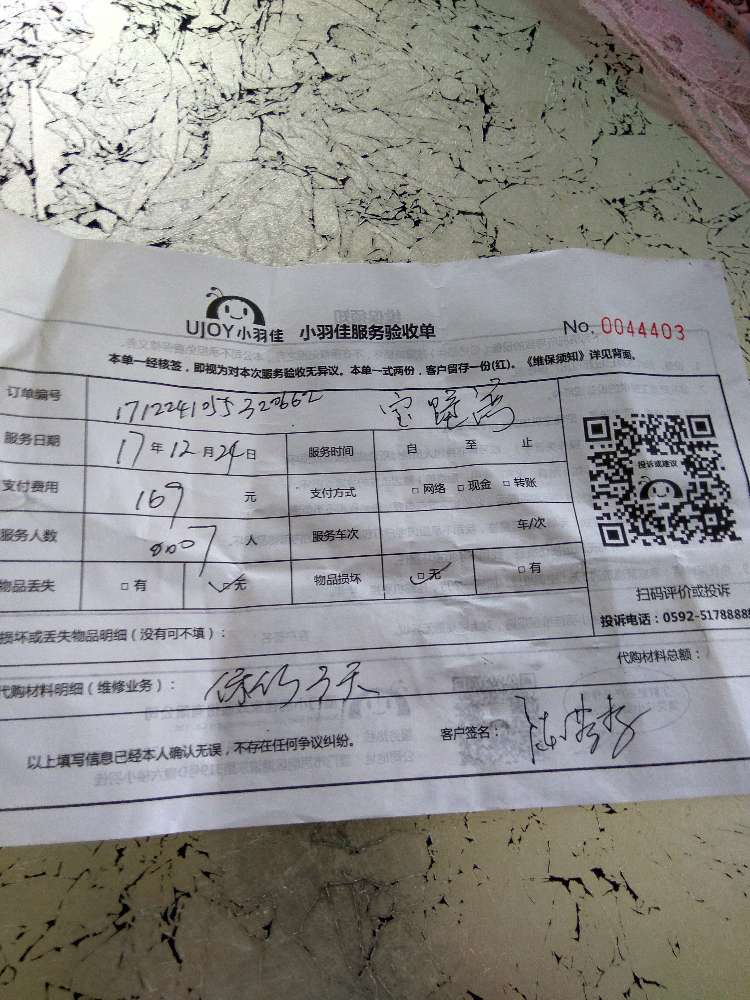 UJOY小羽佳 小羽佳服务验收单 No. 0044403
本单一经核签，即视为对本次服务验收无异议。本单一式两份，客户留存一份(红)。《维保须知》详见背面。
订单编号 1712241055320662
服务日期 17年12月24日 服务时间 自 至 止
支付费用 169 元 支付方式 □网络 □现金 □转账
服务人数 0007 人 服务车次 车/次
物品丢失 □有 □无 物品损坏 □无 □有
投诉或建议
扫码评价或投诉
投诉电话：0592-5178888
损坏或丢失物品明细（没有可不填）：
代购材料明细（维修业务）： 代购材料总额：
以上填写信息已经本人确认无误，不存在任何争议纠纷。 客户签名：